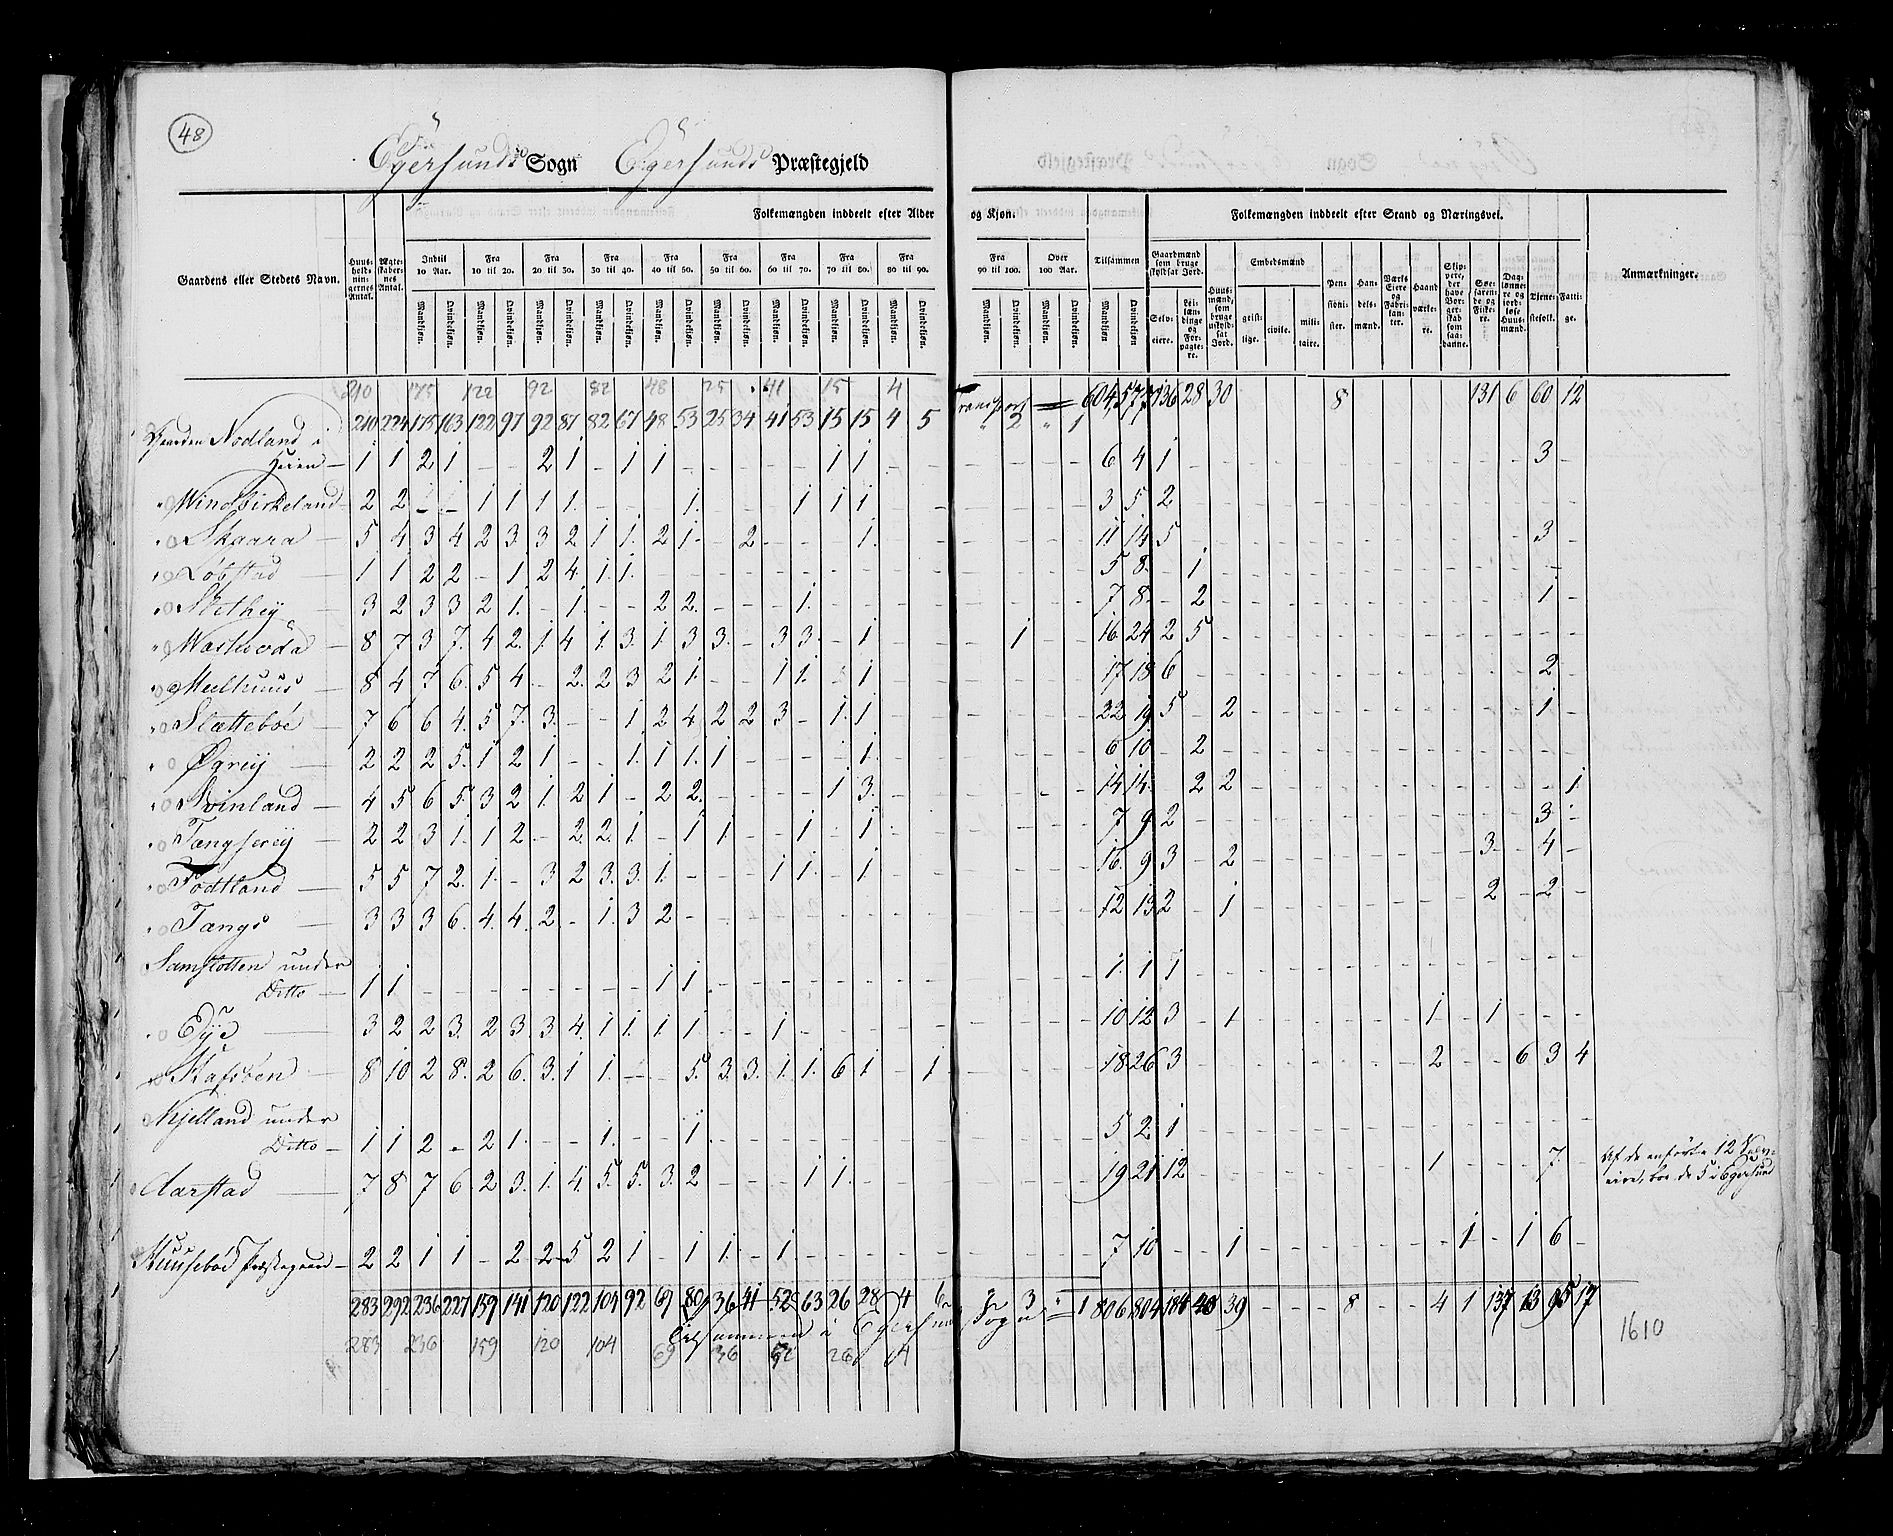 48
Egersunds Sogn Egersunds Præstegjeld
Gaardens eller Stedets Navn. Huus-holdnin-gernes Antal. Ægte-skaber-nes Antal. Folkemængden inddeelt efter Alder og Kjøn. Tilsammen Folkemængden inddeelt efter Stand og Næringsvei. Anmærkninger.
Indtil 10 Aar. Fra 10 til 20. Fra 20 til 30. Fra 30 til 40. Fra 40 til 50. Fra 50 til 60. Fra 60 til 70. Fra 70 til 80. Fra 80 til 90. Fra 90 til 100. Over 100 Aar.
Mandkjøn. Qvindekjøn.
Gaardmænd som bruge skyldsat Jord. Selv-eiere. Lei-læn-dinge og For-pagte-re. Huus-mænd, som bruge uskyld-sat Jord. Embedsmænd geist-lige. civile. mili-taire. Pen-sioni-ster. Han-dels-mænd. Værks Eiere og Fabri-kan-ter. Haand-værke-re. Skip-pere, der have Bor-gerskab som saa-danne. Søe-faren-de og Fiske-re. Dag-lønne-re og jord-løse Huus-mænd. Tjene-stefolk. Fatti-ge.
210 175 122 92 82 48 25 41 15 4
210 224 175 163 122 97 92 87 82 67 48 53 25 34 41 53 15 15 4 5 Transport " 2 " 1 604 577 136 28 30 8 131 6 60 12
Gaarden Nodland i
Heien 1 1 2 1 - - 2 1 - 1 1 - - - - - 1 1 - - - - - - 6 4 1 3 -
Windbirkeland 2 2 - - 1 1 1 1 - - - 1 - - - 1 1 1 3 5 2
Skaara 5 4 3 4 2 3 3 2 1 1 2 1 - 2 - - - 1 11 14 5 3 -
Løbstad 1 1 2 2 - 1 2 4 1 1 5 8 - 1
3 2 3 3 2 1 - 1 - - 2 2 - - - 1 7 8 - 2 1 -
8 7 3 7 4 2 1 4 1 3 1 3 3 - 3 3 - 1 - - - 1 - - 16 24 2 5
Meelhuus 8 4 7 6 5 4 - 2 2 3 2 1 - - 1 1 - 1 17 18 6 2 -
Slættebøe 7 6 6 4 5 7 3 - - 1 2 4 2 2 3 - 1 1 22 19 5 - 2 1 -
Øgreij 2 2 2 5 1 2 1 - - 1 1 1 1 - - - - 1 6 10 - 2
Svinland 4 5 6 5 3 2 1 2 1 - 2 2 - - - - 1 3 14 14 - 2 2 1
Tengsereij 2 2 3 1 1 2 - 2 2 1 - 1 1 - - 1 - 1 7 9 2 3 -
Fodtland 5 5 7 2 1 - 3 2 3 3 1 - - - 1 1 - 1 16 9 3 - 2 3 - 4 -
Tengs 3 3 3 6 4 4 2 - 1 3 2 - 12 13 2 - 1 2 - 2 -
under
Ditto 1 1 - - - - - - - - 1 1 1 1 1
Edÿe 3 2 2 3 2 3 3 4 1 1 1 1 - - 1 10 12 3 - 1 1 - 1
Hafsøen 8 10 2 8 2 6 3 1 1 - - 5 3 3 1 1 6 1 - 1 18 26 3 2 - - 6 3 4
Kjelland under
Ditto 1 1 2 - 2 1 - - 1 - - 1 5 2 1
Aarstad 7 8 7 6 2 3 1 4 5 5 3 2 - - - 1 1 19 21 12 1 7 - Af de anførte 12 Selv-
eiere, boe de 5 i Egersund
Huusebøe Præstegaard 2 2 1 1 - 2 2 5 2 1 - 1 1 - 1 7 10 - - 1 1 - 1 6 -
283 292 236 227 159 141 120 122 104 92 69 80 36 41 52 63 26 28 4 6 " 3 " 1 806 804 184 48 39 8 4 1 137 13 95 17
Tilsammen i Egersunds Sogn
283 236 159 120 104 69 36 52 26 4
1610